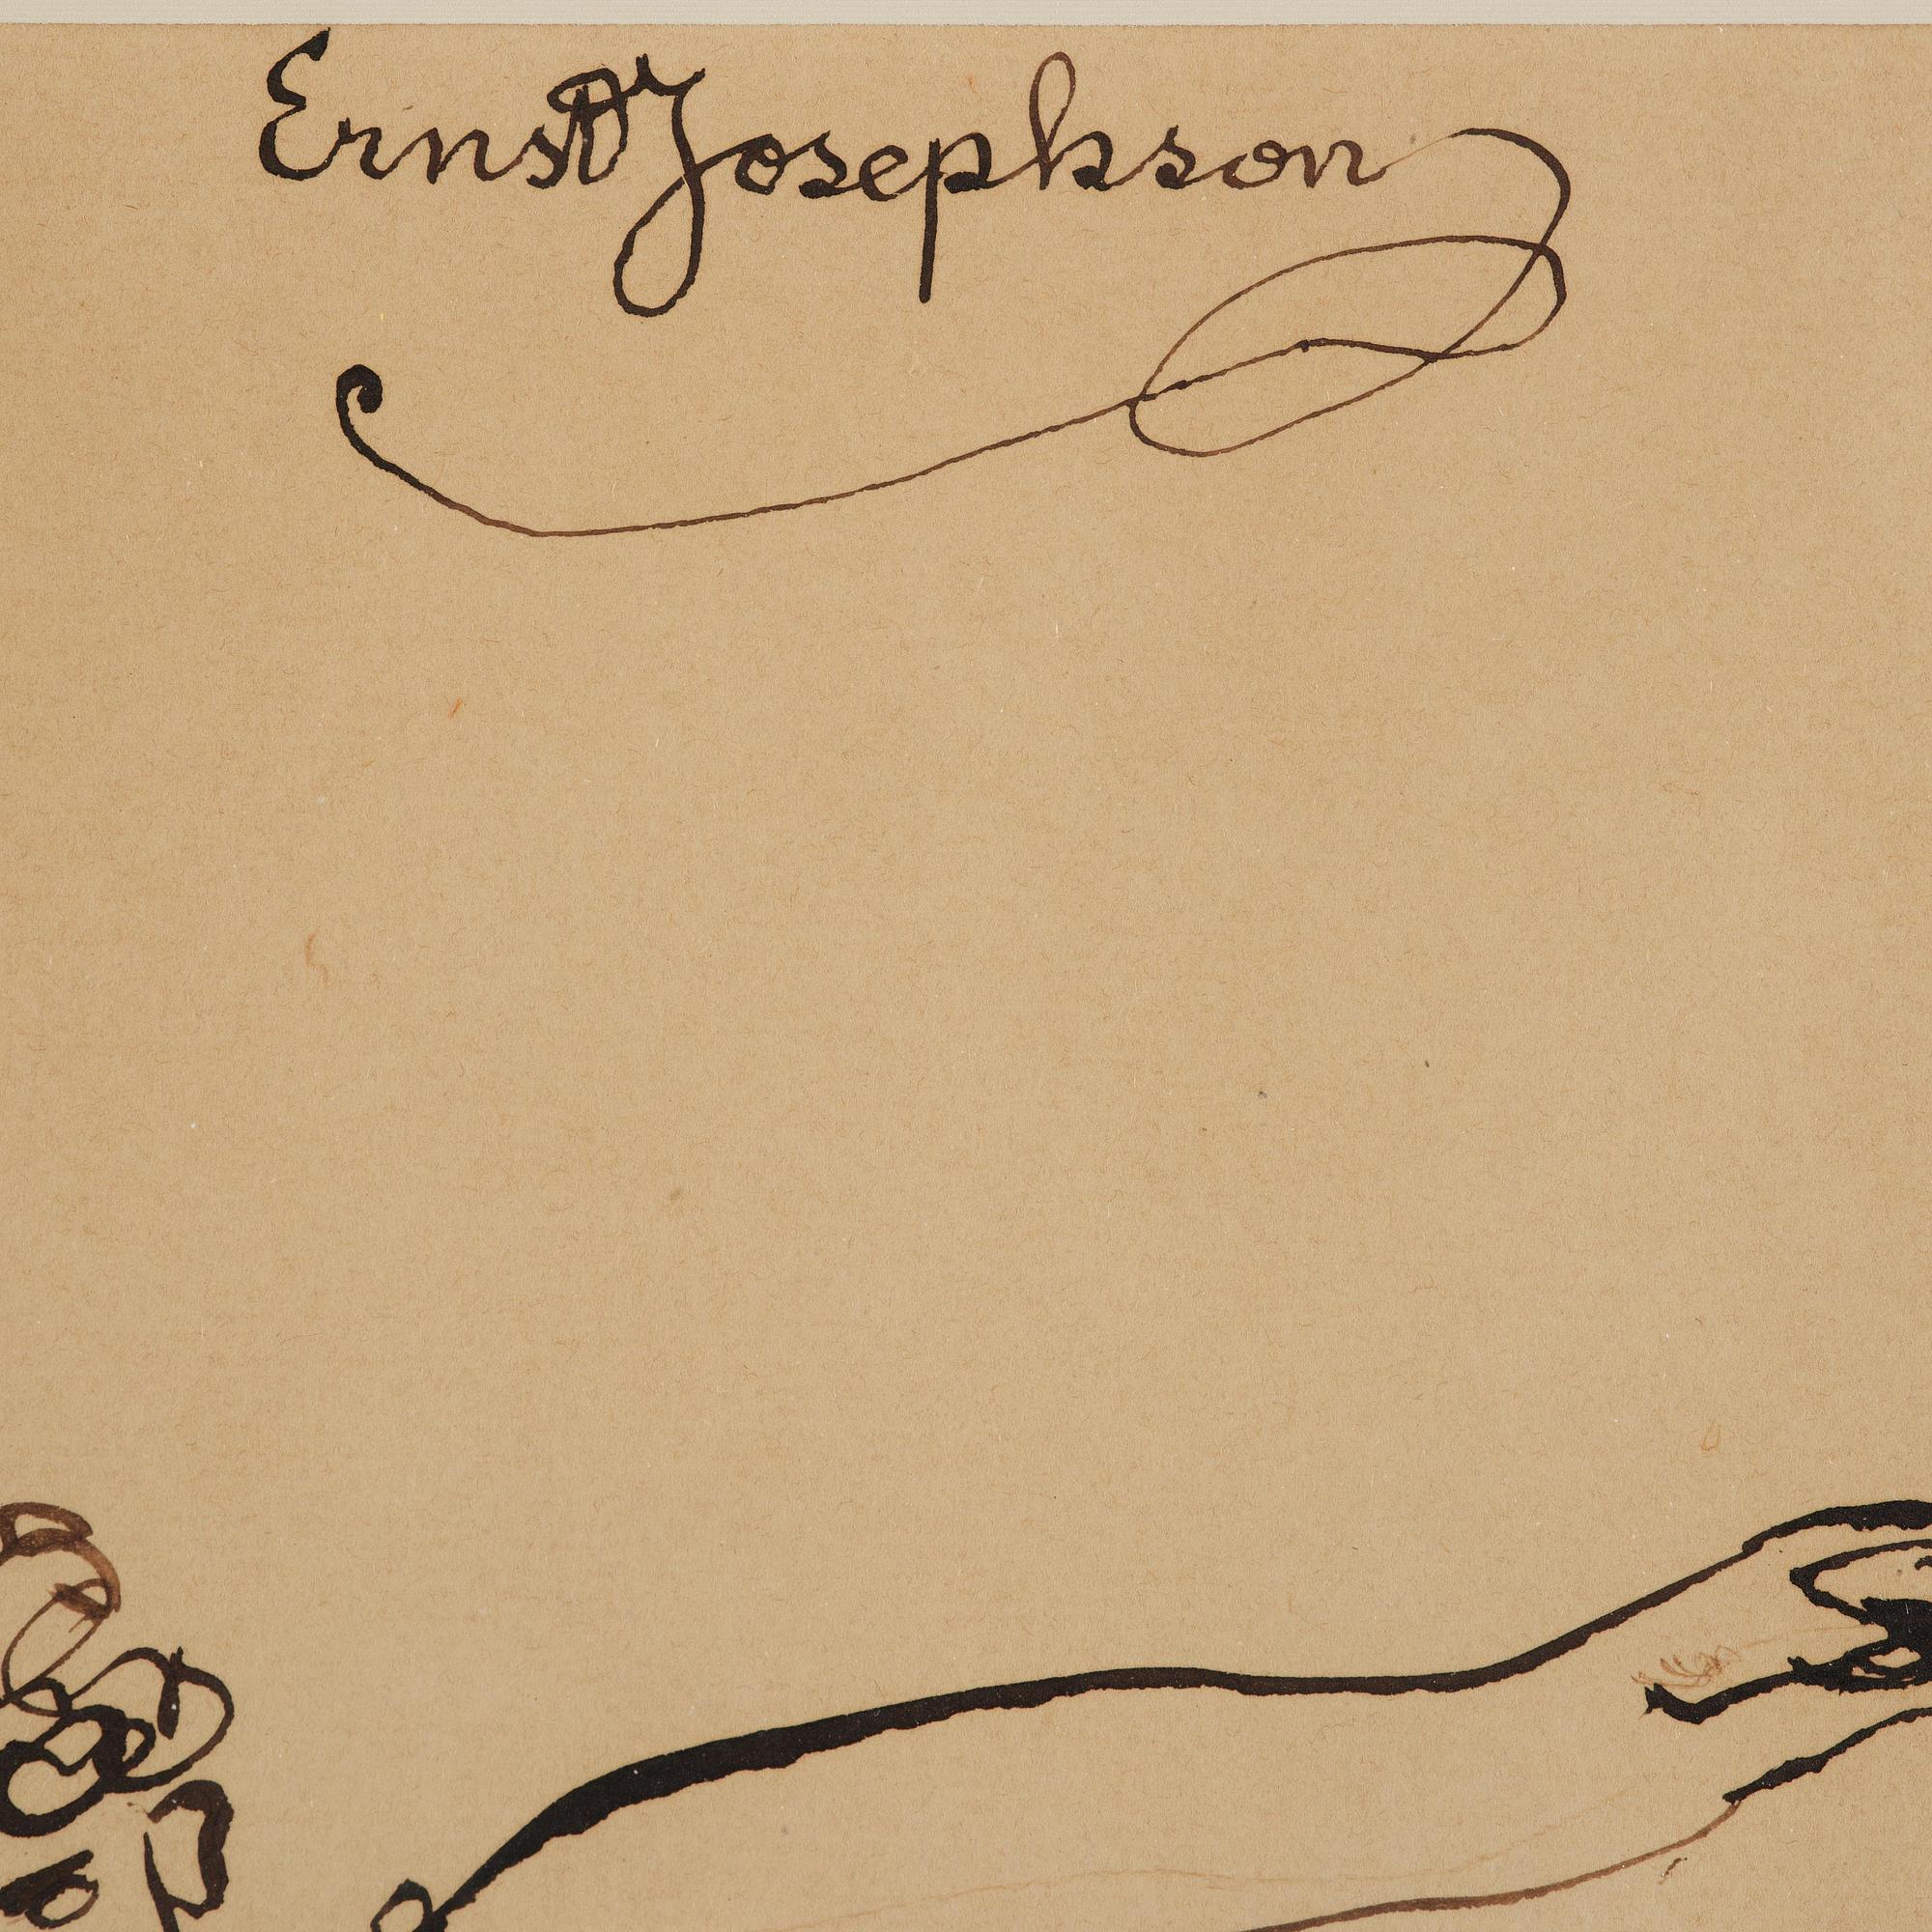 Ernst Josephson